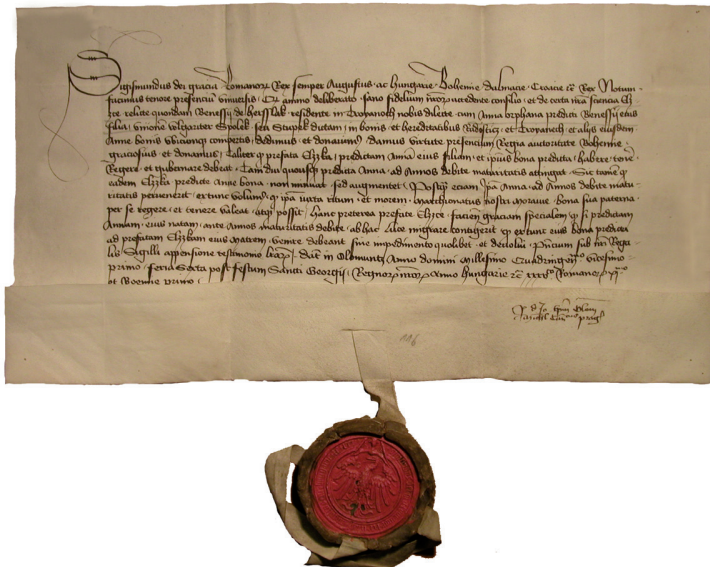 Sigismundus dei gracia Romanorum Rex semper Augustus ac Hungarie Bohemie Dalmacie Croacie etc Rex Notum
facimus tenore presencium universis Quod animo deliberato sano fidelium nostrorum accedente consilio et de certa nostra sciencia Elz
zce relicte quondam Benessij de residente in Troyanech nobis dilecte cum Anna orphana predicti Benessij eius
filia unionem vulgariter Spolek seu Stupek dictam in bonis et hereditatibus et Troyanech et alijs eiusdem
Anne bonis ubicunque compertis dedimus et donavimus damus virtute presencium Regia auctoritate Bohemie
graciosius et donamus Taliter quod prefata Elzka predictam Annam eius filiam et ipsius bona predicta habere tenere
Regere et gubernare debeat Tamdiu quousque predicta Anna ad Annos debite maturitatis attingat Sic tamen quod
eadem Elzka predicte Anne bona non minuat sed augmentet Postquam eciam ipsa Anna ad Annos debite matu
ritatis pervenerit extunc volumus quod ipsa iuxta ritum et morem Marchionatus nostri Moravie bona sua paterna
per se regere et tenere valeat atque possit Hanc preterea prefate Elzce facientes graciam specialem quod si predictam
Annam eius natam ante Annos maturitatis debite ab hac luce migrare contigerit quod extunc eius bona predicta
ad prefatam Elzkam eius matrem venire debeant sine impedimento quolibet et devolui Presencium sub nostri Rega
lis Sigilli appensione testimonio literarum Datum in Olomuntz Anno domini Millesimo Quadringentesimo vicesimo
primo feria Sexta post festum Sancti Georgij Regnorum nostrorum Anno Hungarie etc xxxv Romanorum xj
et Boemie primo